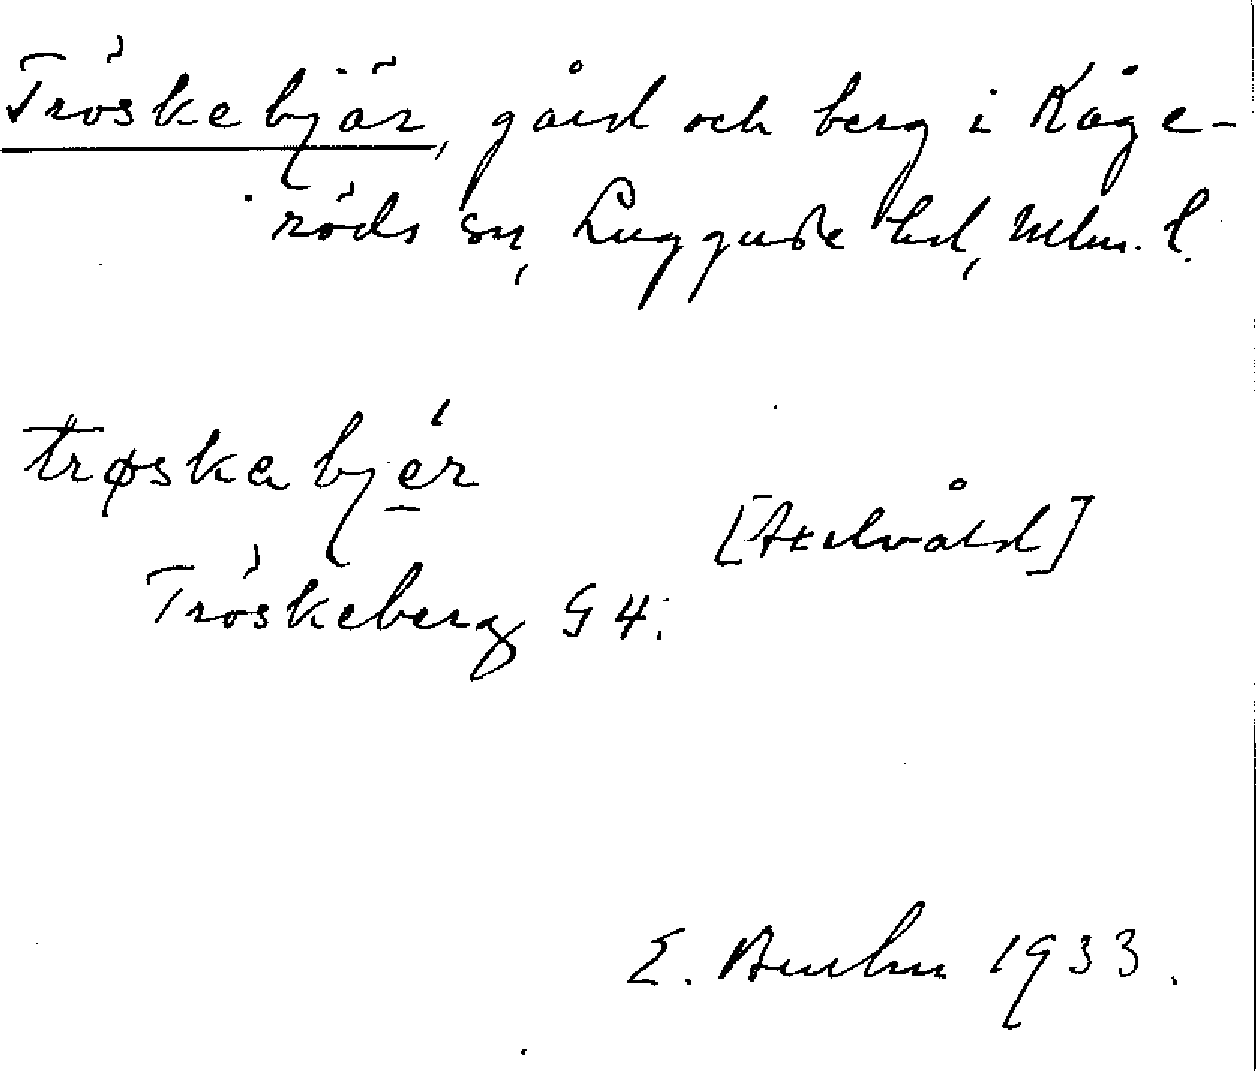 Tröskebjär, gård och berg i Kåge-
röds sn, Luggude hd, Mlm. l.
trøskabjér
[Axelvåld]
Tröskeberg G 4.
E. 1933.